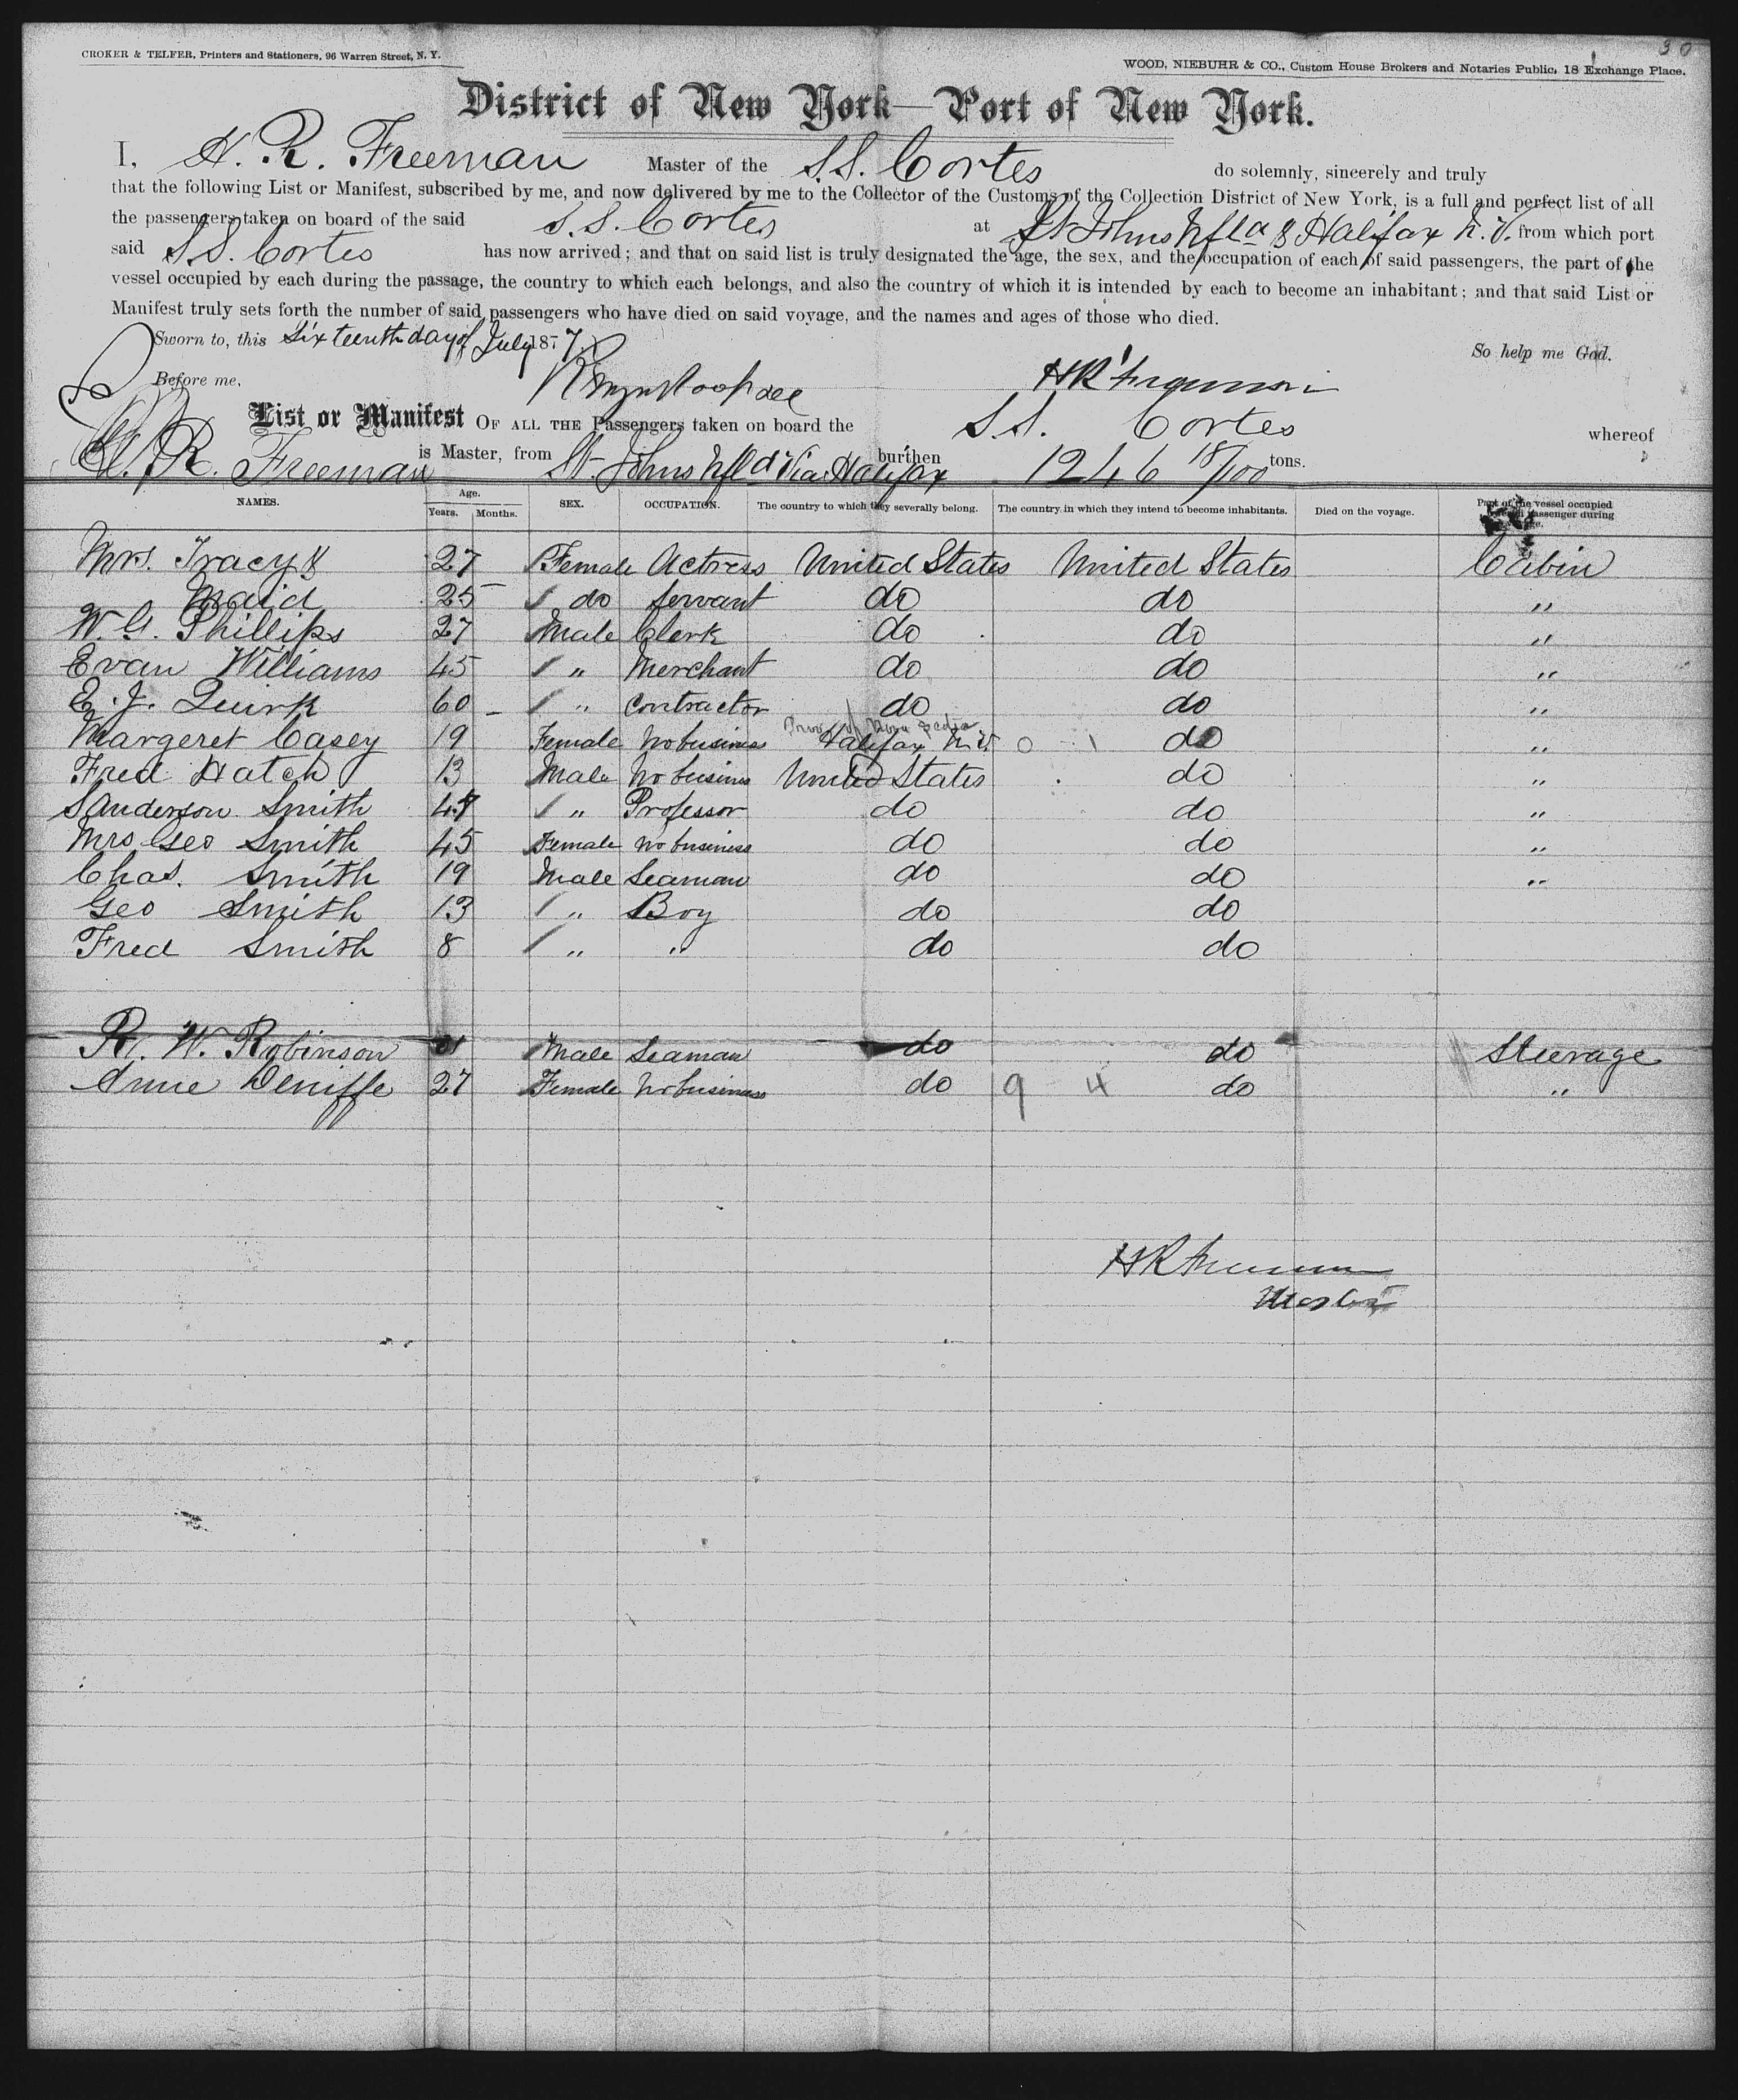 30
CROKER & TELFER, Printers and Stationers, 96 Warren Street, N. Y.
WOOD, NIEBUHR & CO., Custom House Brokers and Notaries Public, 18 Exchange Place.
District of New York—Port of New York.
I, H. R. Freeman Master of the S.S. Cortes do solemnly, sincerely and truly
that the following List or Manifest, subscribed by me, and now delivered by me to the Collector of the Customs of the Collection District of New York, is a full and perfect list of all
the passengers taken on board of the said S.S. Cortes at St Johns Nfld & Halifax N.S. from which port
said S.S. Cortes has now arrived; and that on said list is truly designated the age, the sex, and the occupation of each of said passengers, the part of the
vessel occupied by each during the passage, the country to which each belongs, and also the country of which it is intended by each to become an inhabitant; and that said List or
Manifest truly sets forth the number of said passengers who have died on said voyage, and the names and ages of those who died.
Sworn to, this Sixteenth day of July 1877 So help me God.
Before me, H R Freeman
List or Manifest OF ALL THE Passengers taken on board the S.S. Cortes whereof
H. R. Freeman is Master, from St Johns Nfld via Halifax burthen 1246 18/100 tons.
NAMES. Age. Years. Months. SEX. OCCUPATION. The country to which they severally belong. The country in which they intend to become inhabitants. Died on the voyage. Part of the vessel occupied passenger during
Mrs. Tracy & 27 Female Actress United States United States Cabin
Maid 25 do Servant do do "
W. G. Phillips 27 Male Clerk do do "
Evan Williams 45 " Merchant do do "
E. J. Quirk 60 " Contractor do do "
Margeret Casey 19 Female No business Prov of Nova Scotia Halifax N.S. 0 1 do "
Fred Hatch 13 Male No business United States do "
Sanderson Smith " Professor do do "
Mrs Geo Smith 45 Female No business do do "
Chas. Smith 19 Male Seaman do do "
Geo Smith 13 " Boy do do
Fred Smith 8 " " do do
R. W. Robinson Male Seaman do do Steerage
Anne Deniffe 27 Female No business do 9 4 do "
H R Freeman
Master